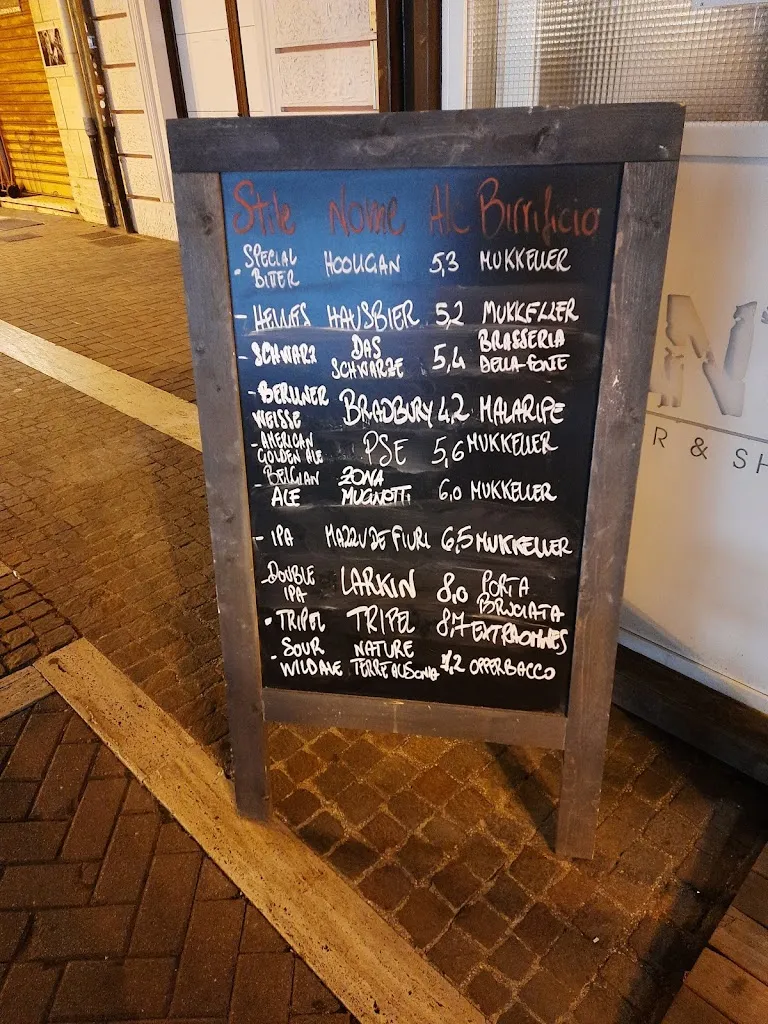 Stile Nome Alc Birrificio
- SPECIAL BITTER HOOLIGAN 5,3 MUKKELLER
- HELLES HAUSBIER 5,2 MUKKELLER
- SCHWARZ DAS SCHWARZE 5,4 BRASSERIA DELLA FONTE
- BERLINER WEISSE BRADBURY 4,2 MALARIPE
- AMERICAN GOLDEN ALE PSE 5,6 MUKKELLER
- BELGIAN ALE ZONA MUGNOTTI 6,0 MUKKELLER
- IPA MAZZU DE FIURI 6,5 MUKKELLER
- DOUBLE IPA LARKIN 8,0 PORTA BRUCIATA
- TRIPEL TRIPEL 8,7 EXTRAOMNES
- SOUR WILD ALE NATURE TERRE AUSONIA 7,2 OPPERBACCO
R & SH